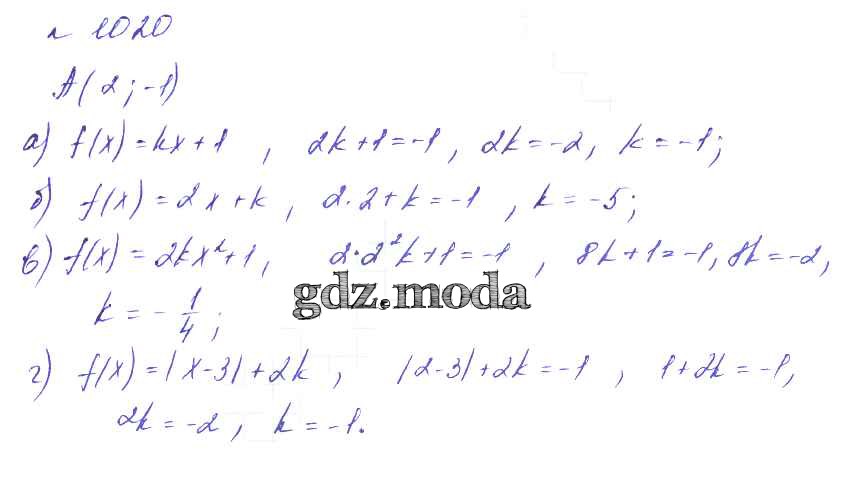 № 1020
A(2; -1)
а) f(x) = kx + 1, 2k + 1 = -1, 2k = -2, k = -1;
б) f(x) = 2x + k, 2·2 + k = -1, k = -5;
в) f(x) = 2kx² + 1, 2·2²k + 1 = -1, 8k + 1 = -1, 8k = -2,
gdz.moda
k = -1/4;
г) f(x) = |x - 3| + 2k, |2 - 3| + 2k = -1, 1 + 2k = -1,
2k = -2, k = -1.